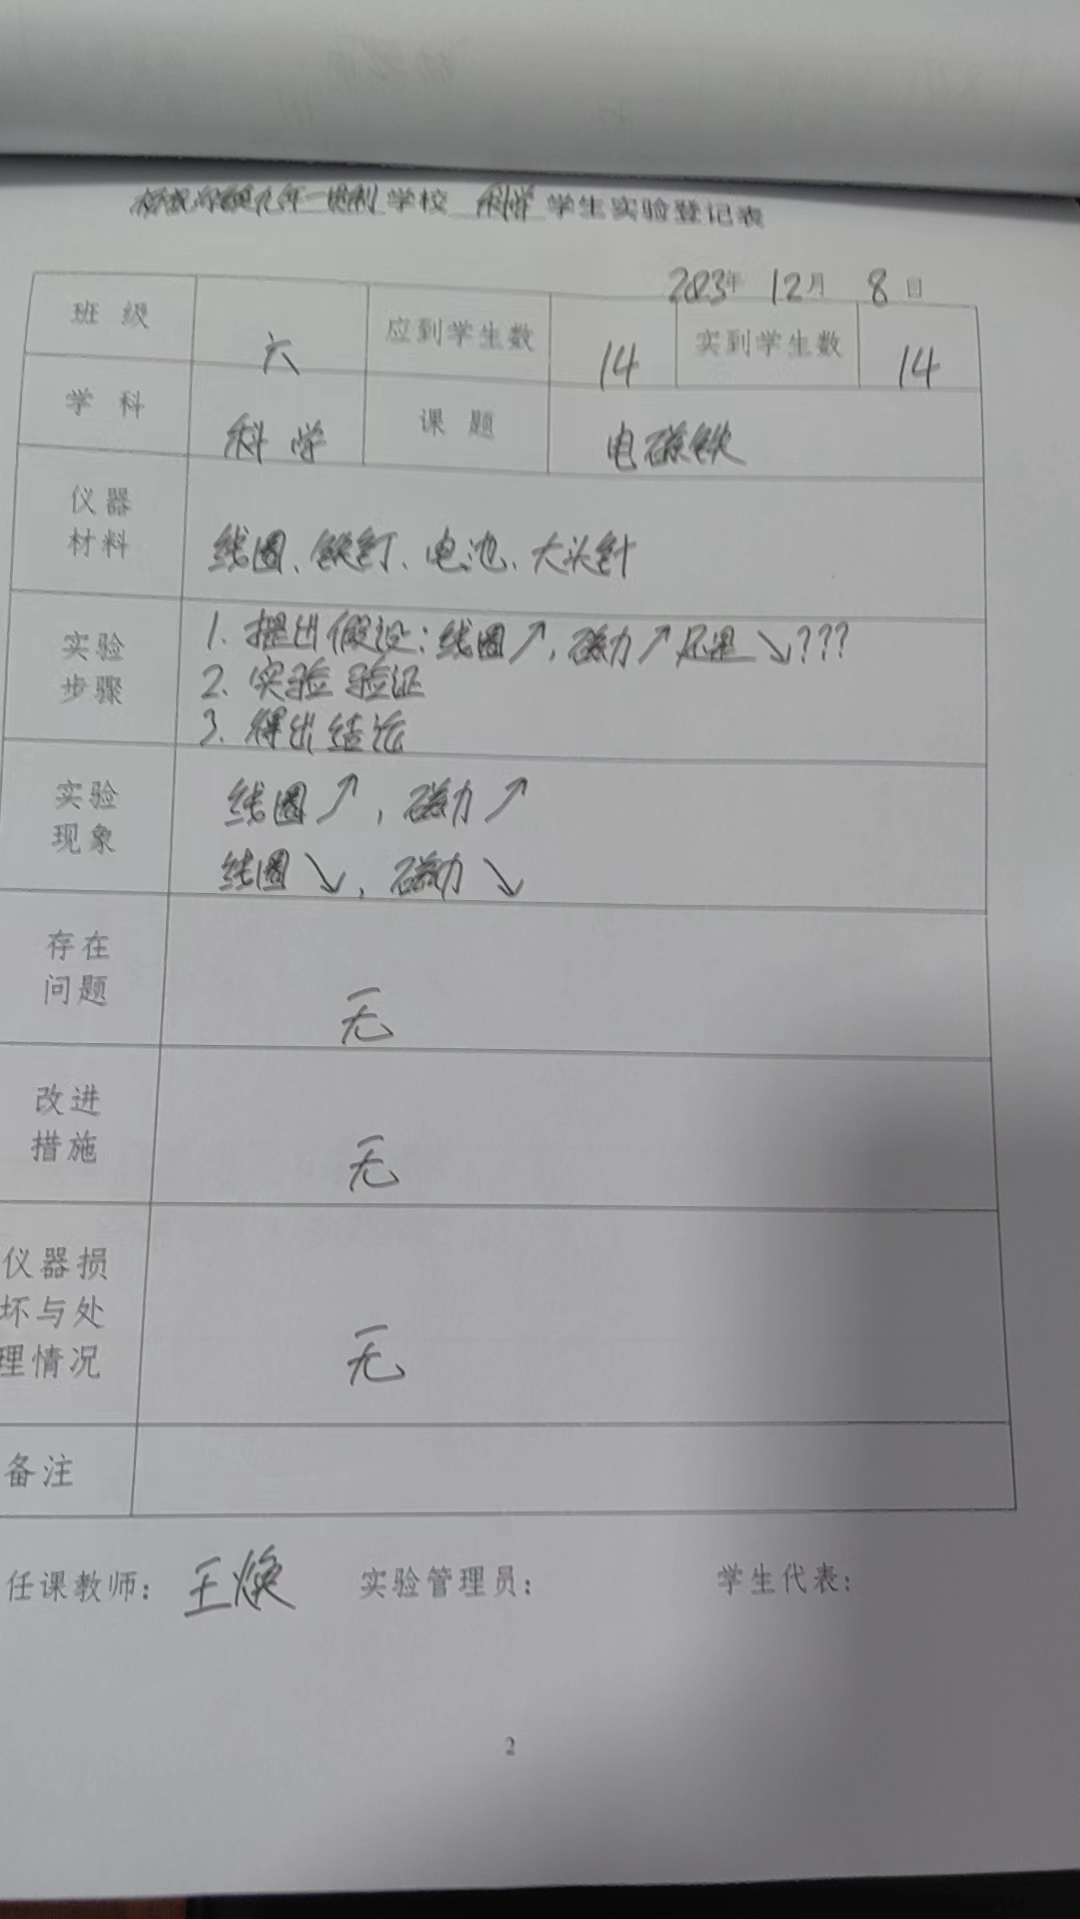 九年一贯制学校 科学 学生实验登记表
2023年 12月 8日
班 级 六 应到学生数 14 实到学生数 14
学 科 科学 课 题 电磁铁
仪器
材料
线圈、铁钉、电池、大头针
实验
步骤
1. 提出假设:线圈↗,磁力↗还是↘???
2. 实验验证
3. 得出结论
实验
现象
线圈↗,磁力↗
线圈↘,磁力↘
存在
问题
无
改进
措施
无
仪器损
坏与处
理情况
无
备注
任课教师: 王焕 实验管理员: 学生代表:
2